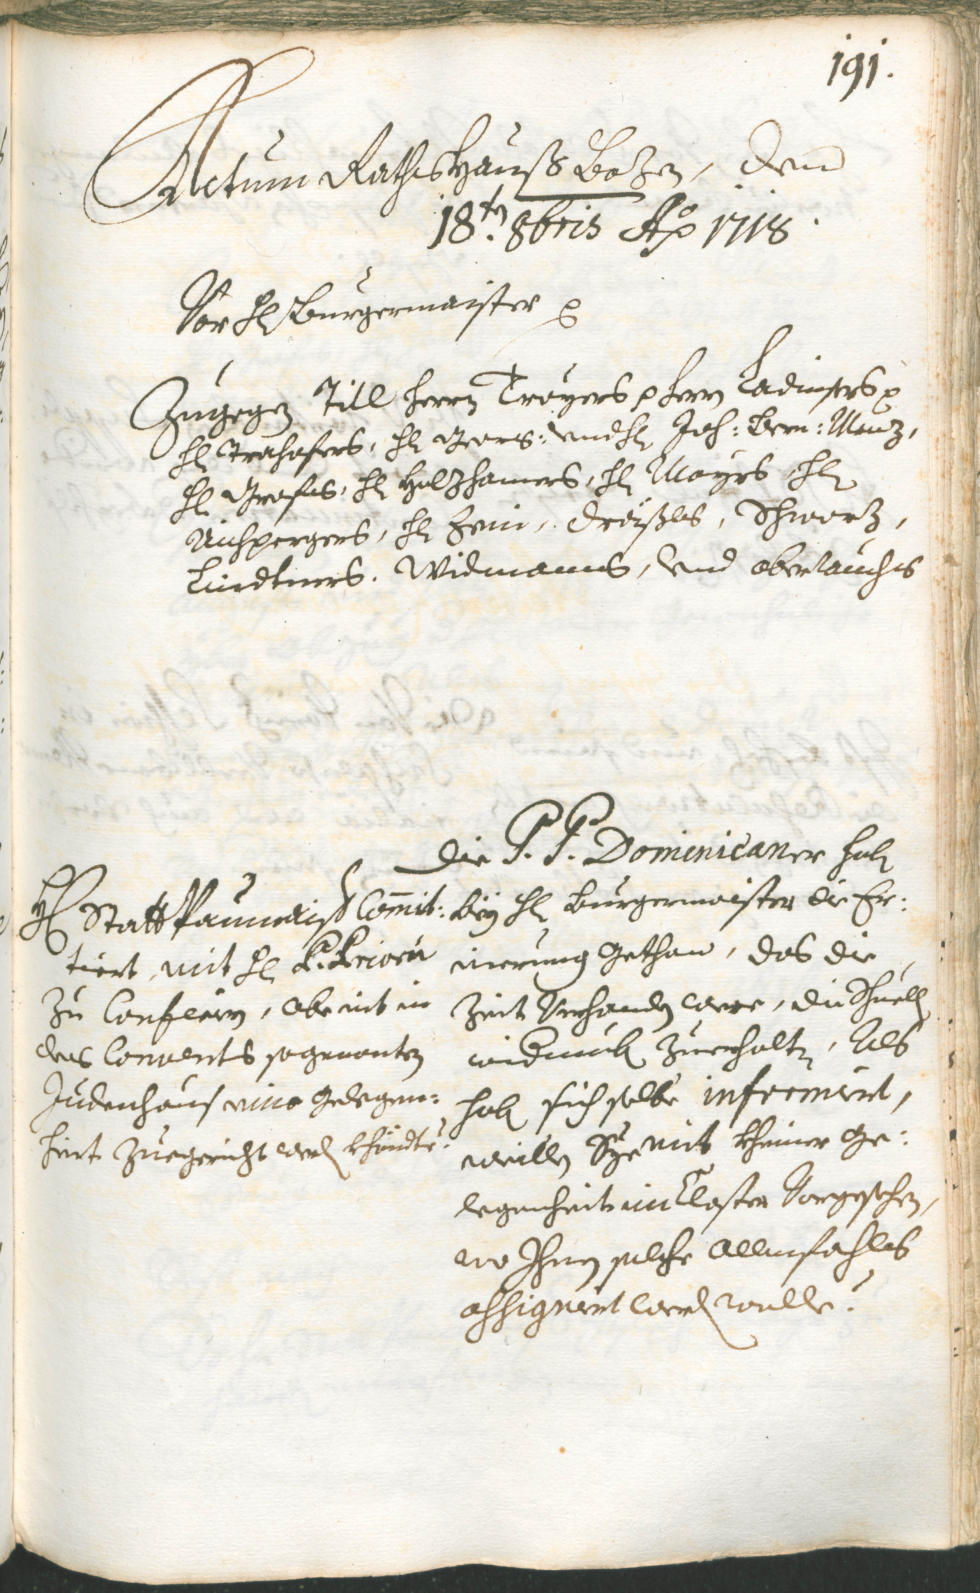 191.
Actum Rathshauß Bozen, den
18ten 8bris Ao 1718.
Vor H Burgermaister
Zugegen Till Herrn Troyers Herrn Ladinsers
H Trahofers, H Georg: und H Joh: Bern: Menz,
H Grafes, H Holzhamers, H Mayrs H
Aichpergers, H Zeni, Dreißles, Schwarz,
Lindtners. Widmanns, und oberlauchs
Die P. P. Dominicaner hab
bey H Burgermaister die Er:
inerung gethan, das die
Zeit verhanden were, die Schuell
widrumb zuerhalt, Als
hab sich selbe informiert,
weillen Sye mit kheiner ge:
legenheit im Closter vorgesehen,
wo Ihnen solche allenfahls
assigniert werd wolle?
H Statt Paumaister Comit:
tiert, mit H P. Priorn
zu Conferiern, ob nit in
des Convents sogenanten
Judenhaus eine gelegen:
heit zuegericht werd khöndte: